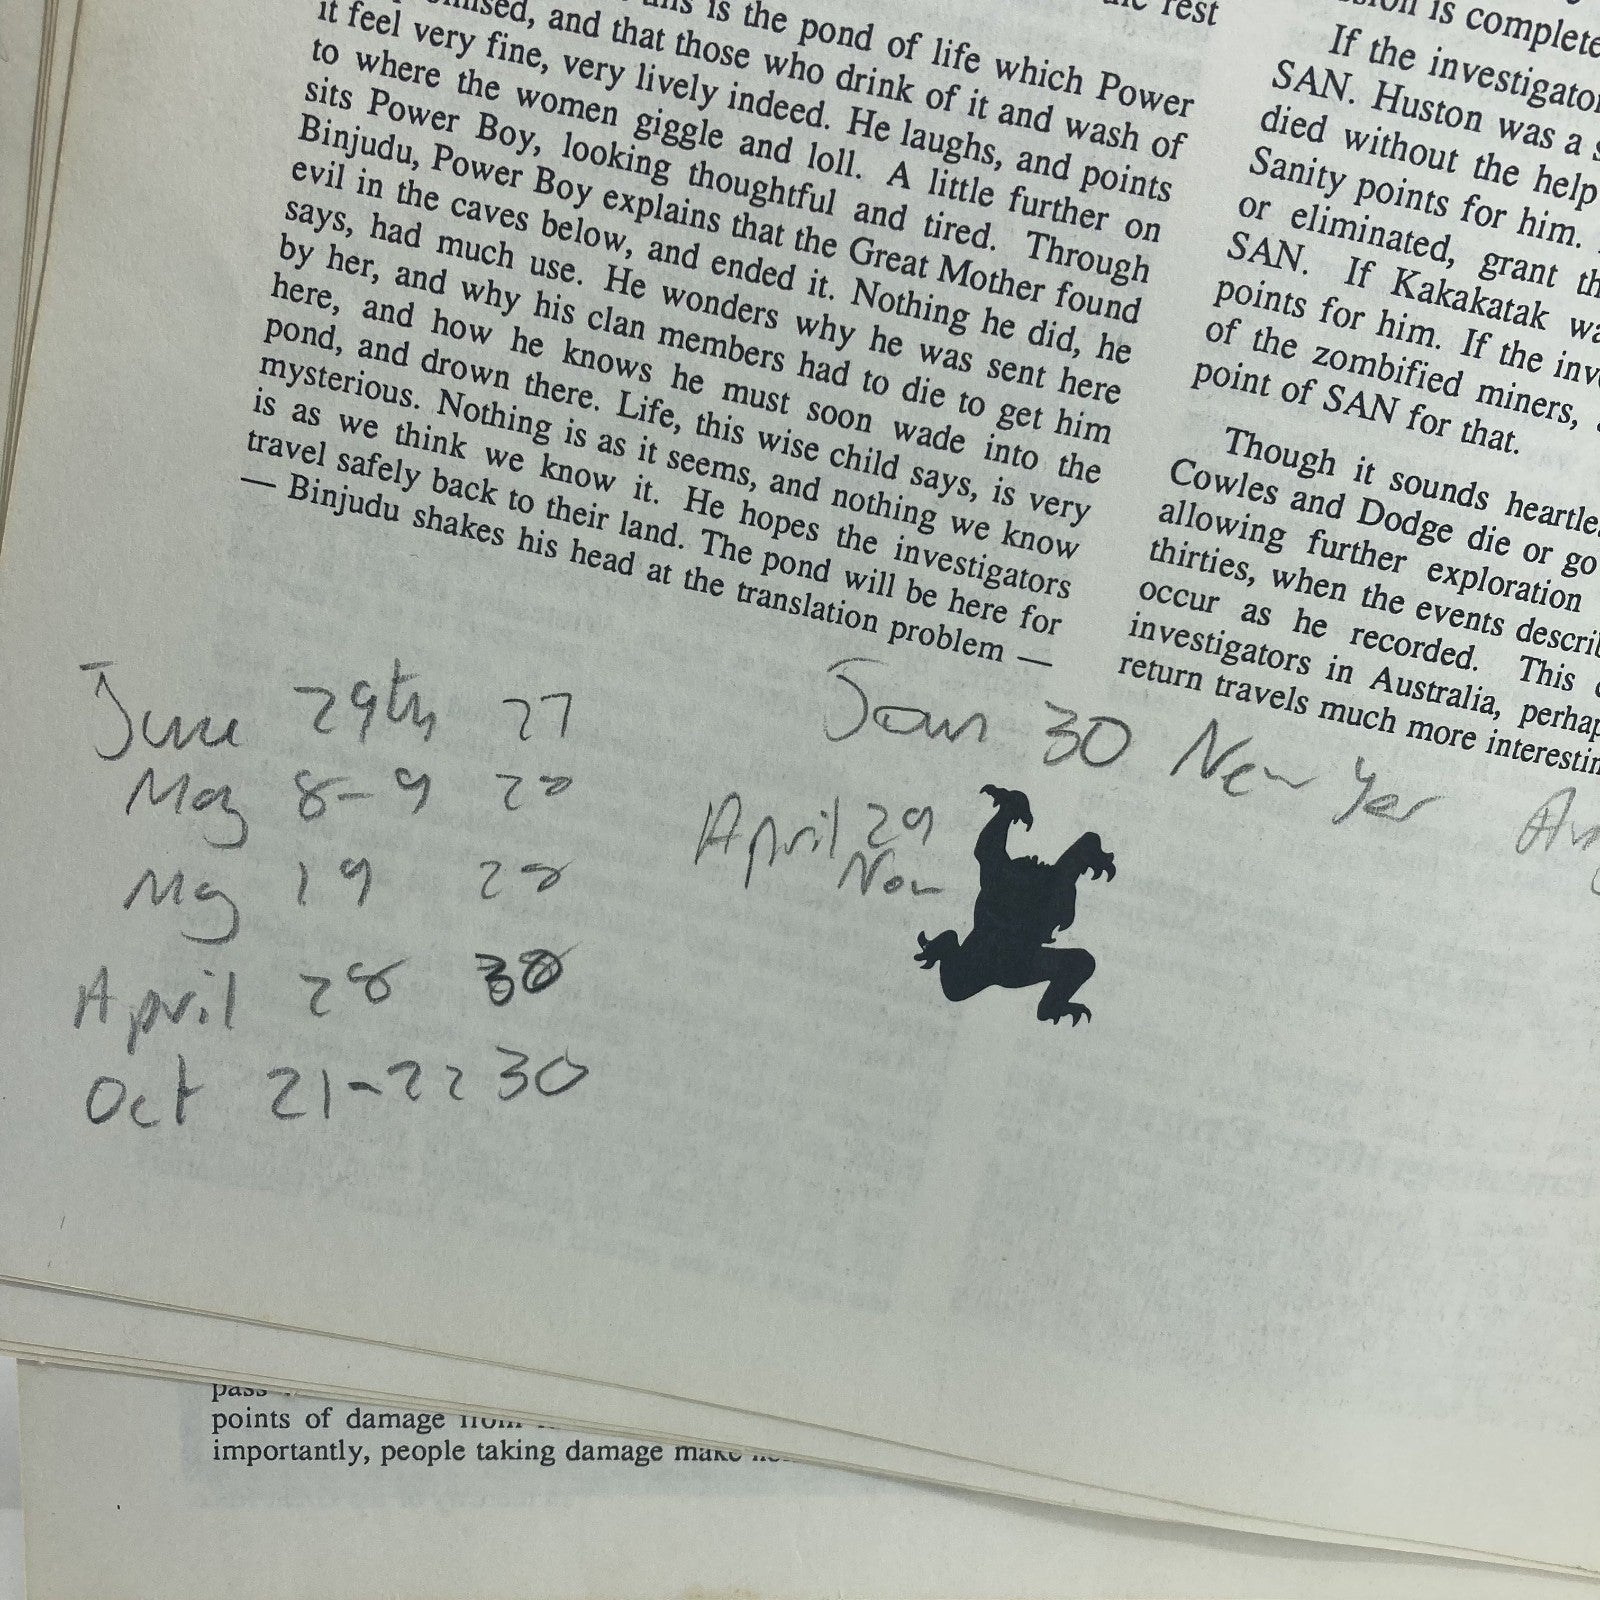 is the pond of life which Power
and that those who drink of it and wash of
it feel very fine, very lively indeed. He laughs, and points
to where the women giggle and loll. A little further on
sits Power Boy, looking thoughtful and tired. Through
Binjudu, Power Boy explains that the Great Mother found
evil in the caves below, and ended it. Nothing he did, he
says, had much use. He wonders why he was sent here
by her, and why his clan members had to die to get him
here, and how he knows he must soon wade into the
pond, and drown there. Life, this wise child says, is very
mysterious. Nothing is as it seems, and nothing we know
is as we think we know it. He hopes the investigators
travel safely back to their land. The pond will be here for
— Binjudu shakes his head at the translation problem —
rest
is complete
If the investigator
SAN. Huston was a
died without the help
Sanity points for him.
or eliminated, grant
SAN. If Kakakatak
points for him. If the
of the zombified miners,
point of SAN for that.
Though it sounds
Cowles and Dodge die or go
allowing further exploration
thirties, when the events
occur as he recorded. This
investigators in Australia,
return travels much more
June 29th 27
May 8-9 28
May 19 28
April 28 30
Oct 21-22 30
Jan 30 New Yer
April 29
Now
points of damage
importantly, people taking damage make